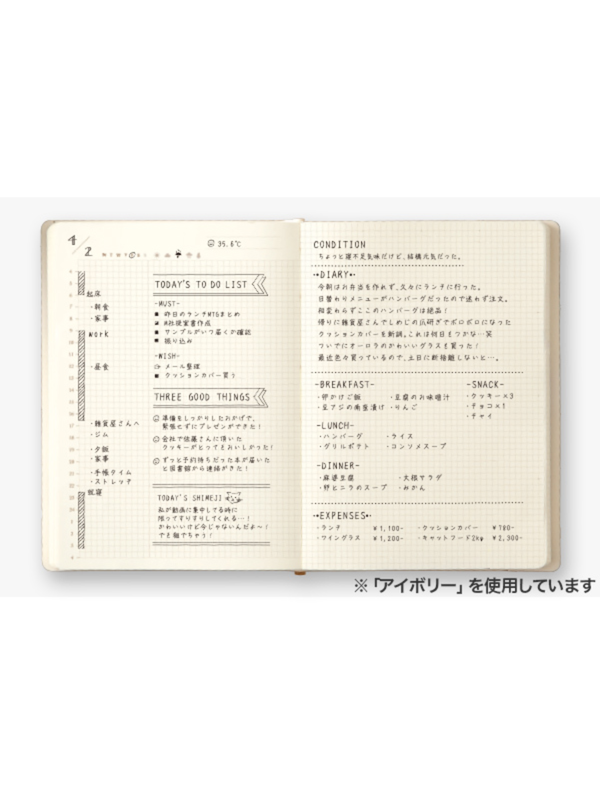 4/2
35.6℃
起床
・朝食
・家事
Work
・昼食
・雑貨屋さんへ
・ジム
・夕飯
・家事
・手帳タイム
・ストレッチ
就寝
TODAY'S TO DO LIST
-MUST-
■ 昨日のランチMTGまとめ
A社提案書作成
■ サンプルがいつ届くか確認
■ 振り込み
-WISH-
メール整理
■ クッションカバー買う
THREE GOOD THINGS
準備をしっかりしたおかげで、
緊張せずにプレゼンができた!
会社で佐藤さんに頂いた
クッキーがとってもおいしかった!
ずっと予約待ちだった本が届いた
と図書館から連絡がきた!
TODAY'S SHIMEJI
私が動画に集中してる時に
限ってすりすりしてくれる…!
かわいいけど今じゃないんだよ〜!
でも撫でちゃう!
CONDITION
ちょっと寝不足気味だけど、結構元気だった。
DIARY
今朝はお弁当を作れず、久々にランチに行った。
日替わりメニューがハンバーグだったので迷わず注文。
相変わらずここのハンバーグは絶品!
帰りに雑貨屋さんでしめじの爪研ぎでボロボロになった
クッションカバーを新調。これは何日もつかな…笑
ついでにオーロラのかわいいグラスも買った!
最近色々買っているので、土日に断捨離しないと…。
-BREAKFAST-
・卵かけご飯 ・豆腐のお味噌汁
・豆アジの南蛮漬け ・りんご
-SNACK-
・クッキー×3
・チョコ×1
・チャイ
-LUNCH-
・ハンバーグ ・ライス
・グリルポテト ・コンソメスープ
-DINNER-
・麻婆豆腐 ・大根サラダ
・卵とニラのスープ ・みかん
EXPENSES
・ランチ ¥1,100- ・クッションカバー ¥780-
・ワイングラス ¥1,200- ・キャットフード2kg ¥2,300-
※「アイボリー」を使用しています